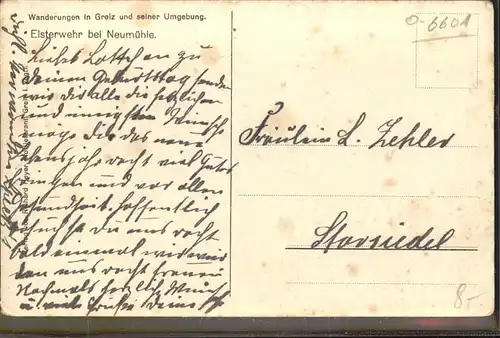 Wanderungen in Greiz und seiner Umgebung.
Elsterwehr bei Neumühle.
Liebes Lottchen zu
deinem Geburtstag senden
wir Dir Alle die herzlichen
und innigsten Wünsche
möge Dir das neue
Lebensjahr recht viel Gutes
bringen und vor allen
Gesundheit. Hoffentlich
suchst Du uns recht
bald einmal wir wer
den uns recht freuen
Nochmals herzlich Wünsch
u. viele Grüße Deine
Fräulein L. Zehler
Starsiedel
0-6601
8-